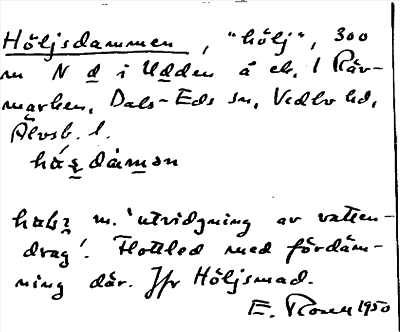 Höljsdammen, "hölj", 300
m N d i Udden å ek. 1 Räv-
marken, Dals-Eds sn, Vedbo hd,
Älvsb. l.
dámən
m. 'utvidgning av vatten-
drag'. Flottled med fördäm-
ning där. Jfr Höljsmad.
E. Rosell 1950